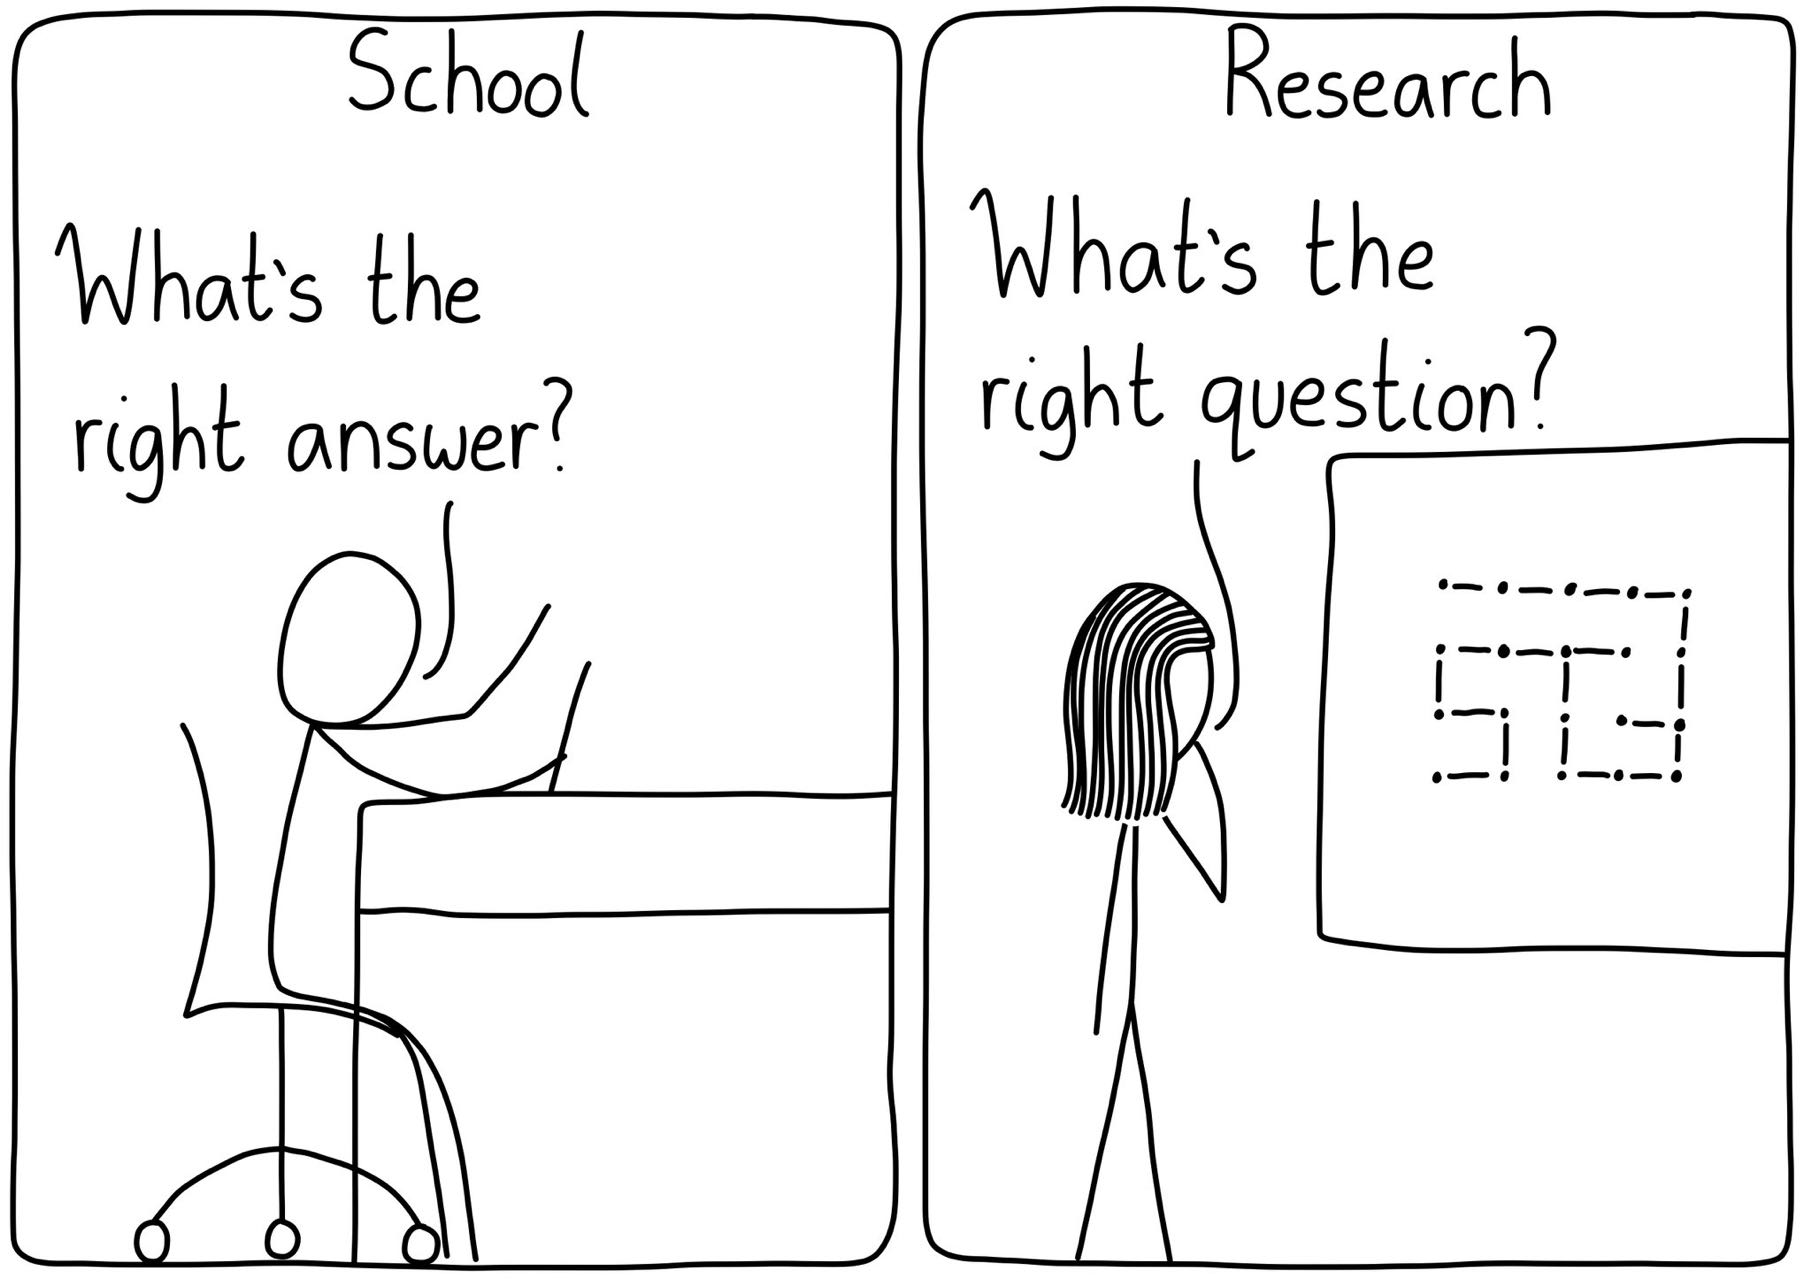 School
What's the
right answer?
Research
What's the
right question?